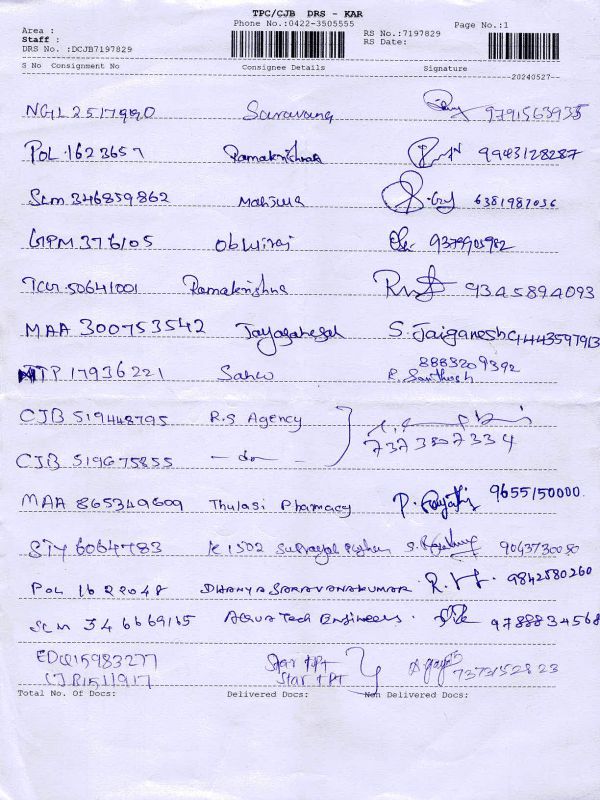 TPC/CJB DRS - KAR
Phone No.:0422-3505555 Page No.:1
Area :
Staff : RS No.:7197829
DRS No. :DCJB7197829 RS Date:
S No Consignment No Consignee Details Signature
20240527
NGL 2517990 Saravana 9791563935
POL 1623657 Ramakrishna 9943128287
SLM 346859862 Manjula 6381987036
GPM 376105 Obluiraj
TCR 50641001 Ramakrishna 9345894093
MAA 300753542 S. Jaiganesh
TP 17936221 8883209392
R. Santhosh
CJB 519448795 R.S Agency
7373807334
CJB 519675855 - do -
MAA 865349609 Thulasi Pharmacy 9655150000
6064783 K 1502 9043730050
POL 1622048 DHANYA SARAVANAKUMAR 9842580260
SLM 346669165 Aqua Tech Engineers. 9788834568
EDQ15983277 Star TPT
Star TPT 7373152823
Total No. Of Docs: Delivered Docs: Non Delivered Docs: